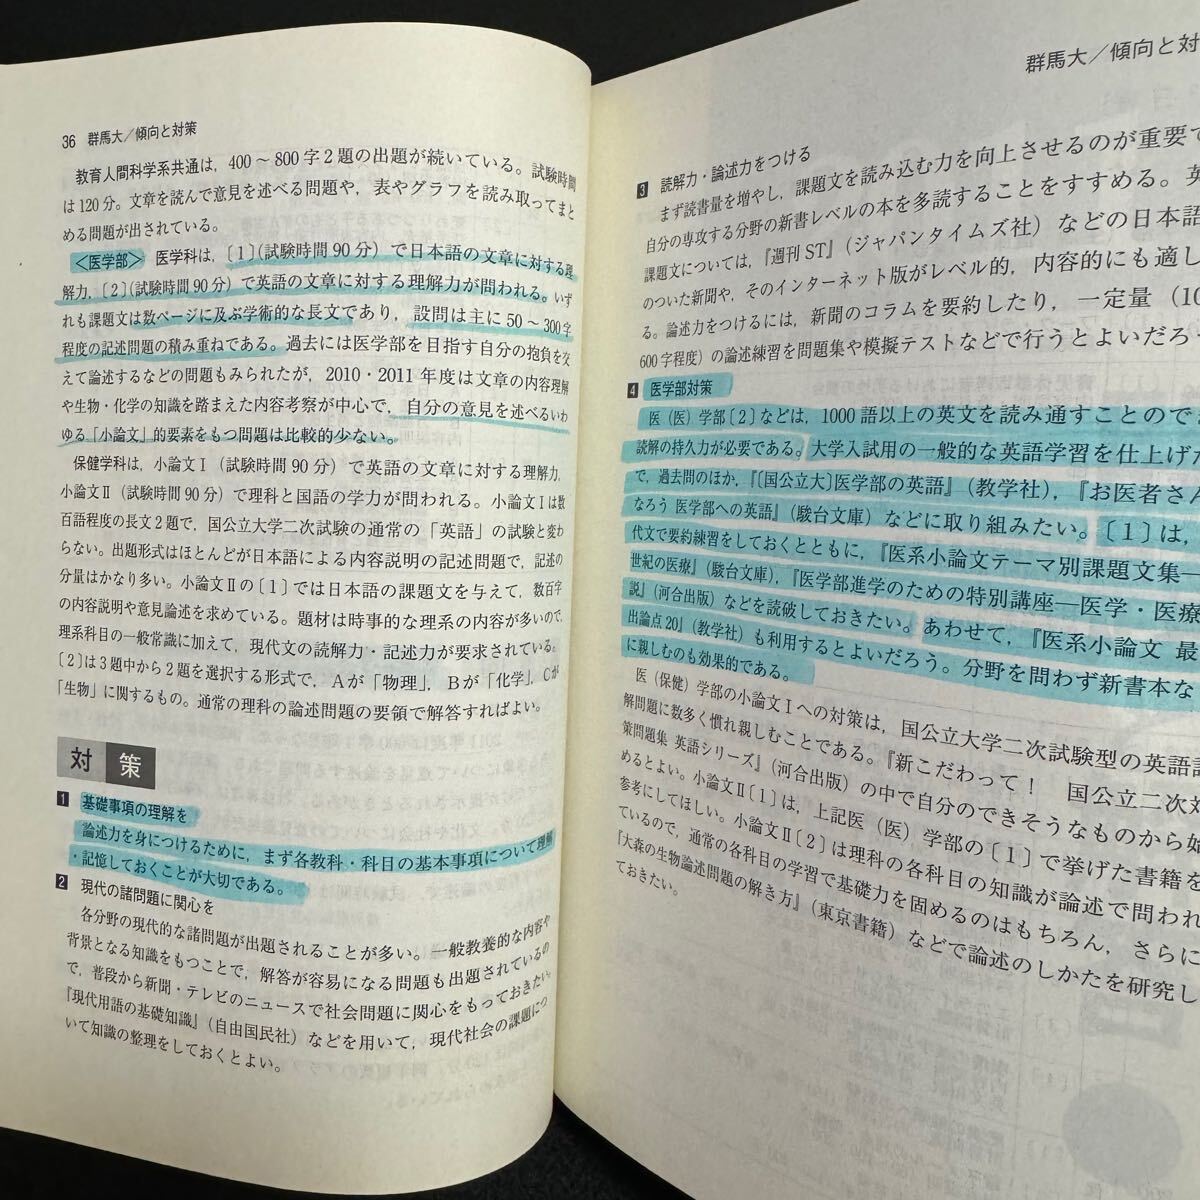 36 群馬大／傾向と対策
教育人間科学系共通は，400～800字2題の出題が続いている。試験時間
は120分。文章を読んで意見を述べる問題や，表やグラフを読み取ってまと
める問題が出されている。
〈医学部〉 医学科は，〔1〕(試験時間90分）で日本語の文章に対する理
解力，〔2〕(試験時間90分）で英語の文章に対する理解力が問われる。いず
れも課題文は数ページに及ぶ学術的な長文であり，設問は主に50～300字
程度の記述問題の積み重ねである。過去には医学部を目指す自分の抱負を交
えて論述するなどの問題もみられたが，2010・2011年度は文章の内容理解
や生物・化学の知識を踏まえた内容考察が中心で，自分の意見を述べるいわ
ゆる「小論文」的要素をもつ問題は比較的少ない。
保健学科は，小論文Ⅰ（試験時間90分）で英語の文章に対する理解力，
小論文Ⅱ（試験時間90分）で理科と国語の学力が問われる。小論文Ⅰは数
百語程度の長文2題で，国公立大学二次試験の通常の「英語」の試験と変わ
らない。出題形式はほとんどが日本語による内容説明の記述問題で，記述の
分量はかなり多い。小論文Ⅱの〔1〕では日本語の課題文を与えて，数百字
の内容説明や意見論述を求めている。題材は時事的な理系の内容が多いので，
理系科目の一般常識に加えて，現代文の読解力・記述力が要求されている。
〔2〕は3題中から2題を選択する形式で，Aが「物理」，Bが「化学」，Cが
「生物」に関するもの。通常の理科の論述問題の要領で解答すればよい。
対 策
1 基礎事項の理解を
論述力を身につけるために，まず各教科・科目の基本事項について理解
・記憶しておくことが大切である。
2 現代の諸問題に関心を
各分野の現代的な諸問題が出題されることが多い。一般教養的な内容や
背景となる知識をもつことで，解答が容易になる問題も出題されているの
で，普段から新聞・テレビのニュースで社会問題に関心をもっておきたい。
『現代用語の基礎知識』（自由国民社）などを用いて，現代社会の課題につ
いて知識の整理をしておくとよい。
群馬大／傾向と対
3 読解力・論述力をつける
まず読書量を増やし，課題文を読み込む力を向上させるのが重要で
自分の専攻する分野の新書レベルの本を多読することをすすめる。英
課題文については，『週刊ST』（ジャパンタイムズ社）などの日本語
のついた新聞や，そのインターネット版がレベル的，内容的にも適し
る。論述力をつけるには，新聞のコラムを要約したり，一定量（10
600字程度）の論述練習を問題集や模擬テストなどで行うとよいだろ
4 医学部対策
医（医）学部〔2〕などは，1000語以上の英文を読み通すことのでき
読解の持久力が必要である。大学入試用の一般的な英語学習を仕上げ
で，過去問のほか，『〔国公立大〕医学部の英語』（教学社），『お医者さん
なろう 医学部への英語』（駿台文庫）などに取り組みたい。〔1〕は，
代文で要約練習をしておくとともに，『医系小論文テーマ別課題文集—
世紀の医療』（駿台文庫），『医学部進学のための特別講座—医学・医療
説』（河合出版）などを読破しておきたい。あわせて，『医系小論文 最
出論点20』（教学社）も利用するとよいだろう。分野を問わず新書本な
に親しむのも効果的である。
医（保健）学部の小論文Ⅰへの対策は，国公立大学二次試験型の英語
解問題に数多く慣れ親しむことである。『新こだわって！ 国公立二次対
策問題集 英語シリーズ』（河合出版）の中で自分のできそうなものから始
めるとよい。小論文Ⅱ〔1〕は，上記医（医）学部の〔1〕で挙げた書籍を
参考にしてほしい。小論文Ⅱ〔2〕は理科の各科目の知識が論述で問われ
ているので，通常の各科目の学習で基礎力を固めるのはもちろん，さらに
『大森の生物論述問題の解き方』（東京書籍）などで論述のしかたを研究し
ておきたい。